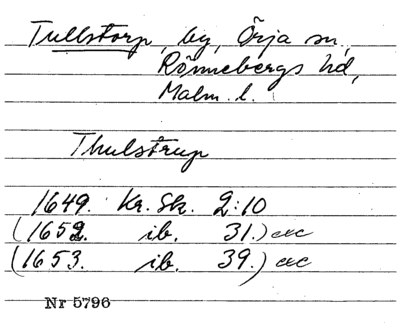 Tullstorp, by, Örja sn,
Rönnebergs hd,
Malm. l.
Thulstrup
1649. Kr. Sk. 2:10
(1652. ib. 31.) etc
(1653. ib. 39.) etc
Nr 5796